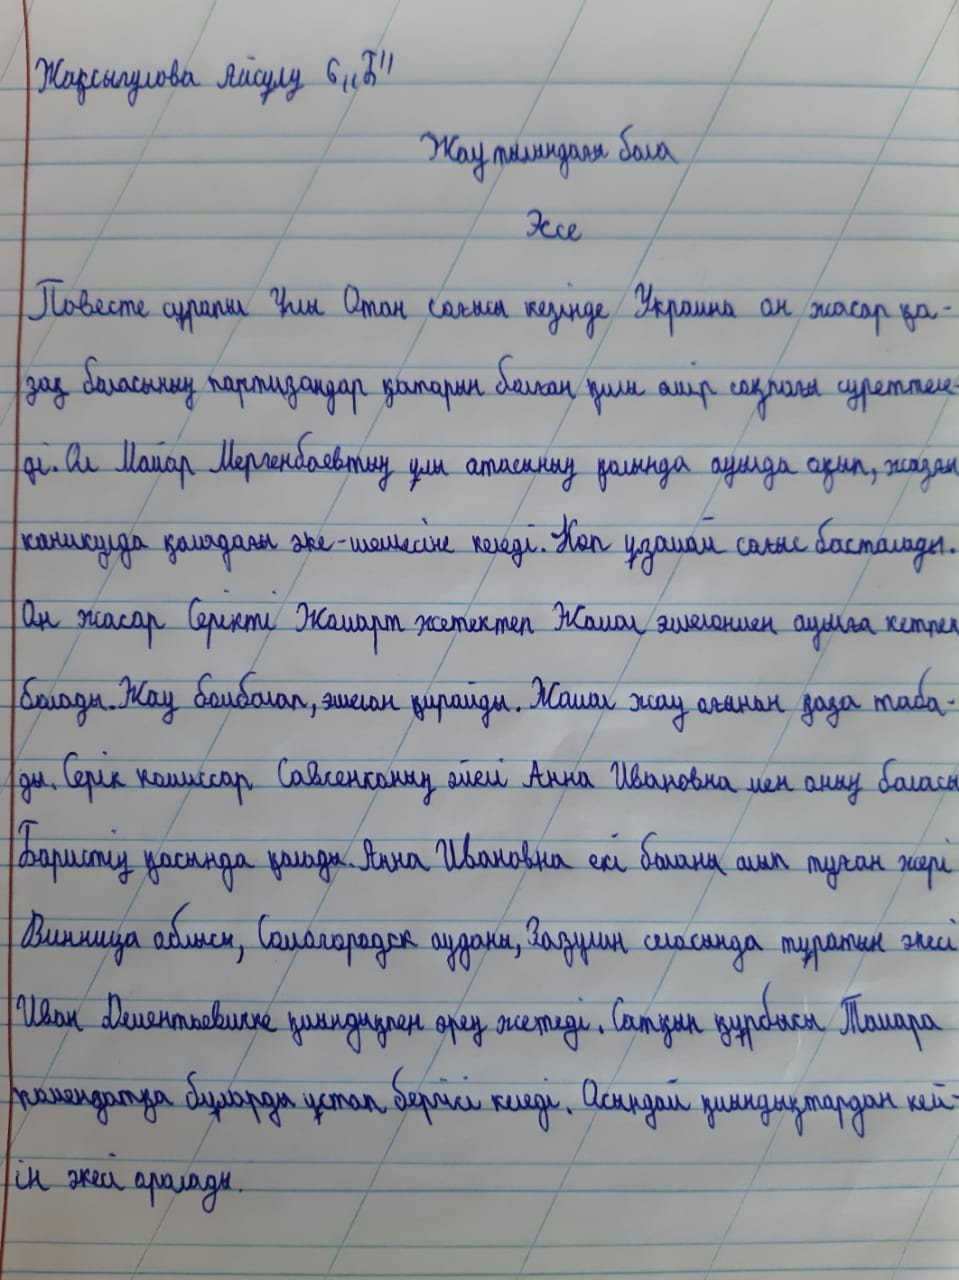 Жақсыгулова Айсұлу 6 „Б"
Жау тылындағы бала
Эссе
Повесте сұрапыл Ұлы Отан соғысы кезінде Украина он жасар қа-
зақ баласының партизандар қатарын болған қилы өмір соқпағы суреттеле-
ді. Ол Майор Мергенбаевтың ұлы атасының қолында ауылда оқып, жазғы
каникулда қаладағы әке-шешесіне келеді. Көп ұзамай соғыс басталады.
Он жасар Серікті Жомарт жетектеп Жамал эшелонмен ауылға кетпек
болады. Жау бомбалап, эшелон қирайды. Жамал жау оғынан қаза таба-
ды. Серік комиссар Савченконың әйелі Анна Ивановна мен оның баласы
Бористің қасында қалады. Анна Ивановна екі баланы алып туған жері
Винница облысы, Самогородск ауданы, Зазулин селосында тұратын әкесі
Иван Дементьевичке қиындықпен әрең жетеді. Сатқын құрбысы Тамара
комендатқа бұларды ұстап бергісі келеді. Осындай қиындықтардан кей-
ін әкесі оралады.